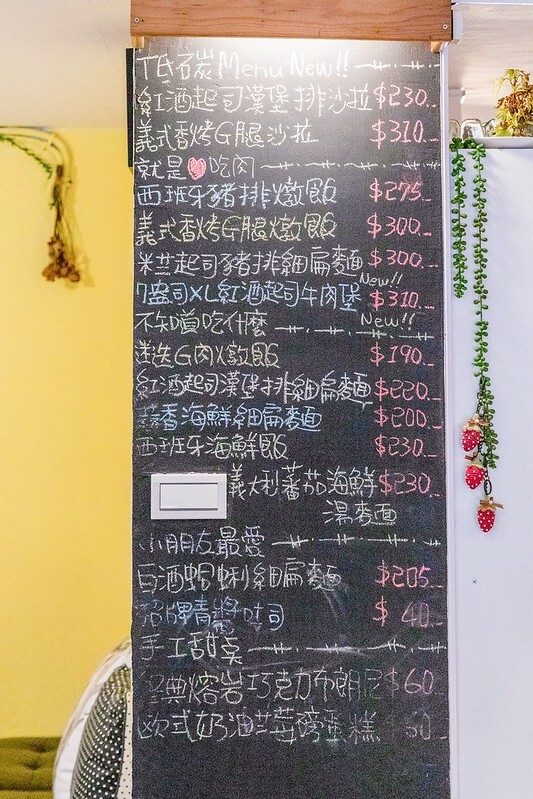 低碳Menu New!!
紅酒起司漢堡排沙拉$230.
義式香烤G腿沙拉 $310.
就是♥吃肉
西班牙豬排燉飯 $275.
義式香烤G腿燉飯 $300.
米芷起司豬排細扁麵 $300.
New!!
7盎司XL紅酒起司牛肉堡 $310.
不知道吃什麼 New!!
迷迭G肉燉飯 $190.
紅酒起司漢堡排細扁麵 $220.
蒜香海鮮細扁麵 $200.
西班牙海鮮飯 $230.
義大利蕃茄海鮮 $230.
湯麵
小朋友最愛
白酒蛤蜊細扁麵 $205.
招牌青醬吐司 $ 40.
手工甜點
經典熔岩巧克力布朗尼 $60.
歐式奶油藍莓磅蛋糕 $60.